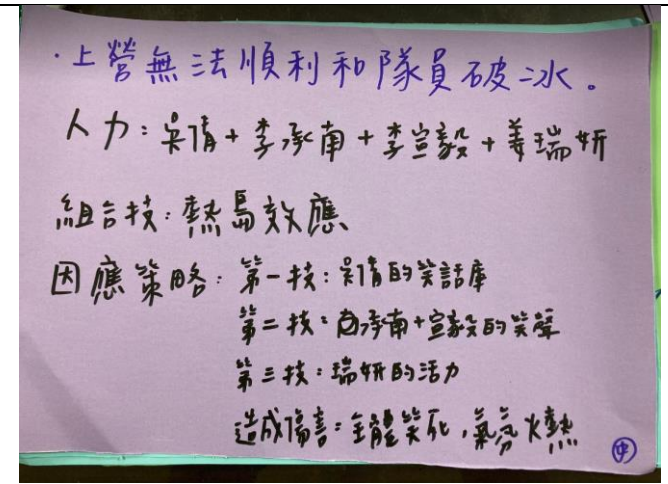 ·上營無法順利和隊員破冰。
人力：吳倩+李承南+李宣毅+姜瑞妍
組合技：熱島效應
因應策略：第一技：吳倩的笑話庫
第二技：承南+宣毅的笑聲
第三技：瑞妍的活力
造成傷害：全體笑死，氣氛火熱
中